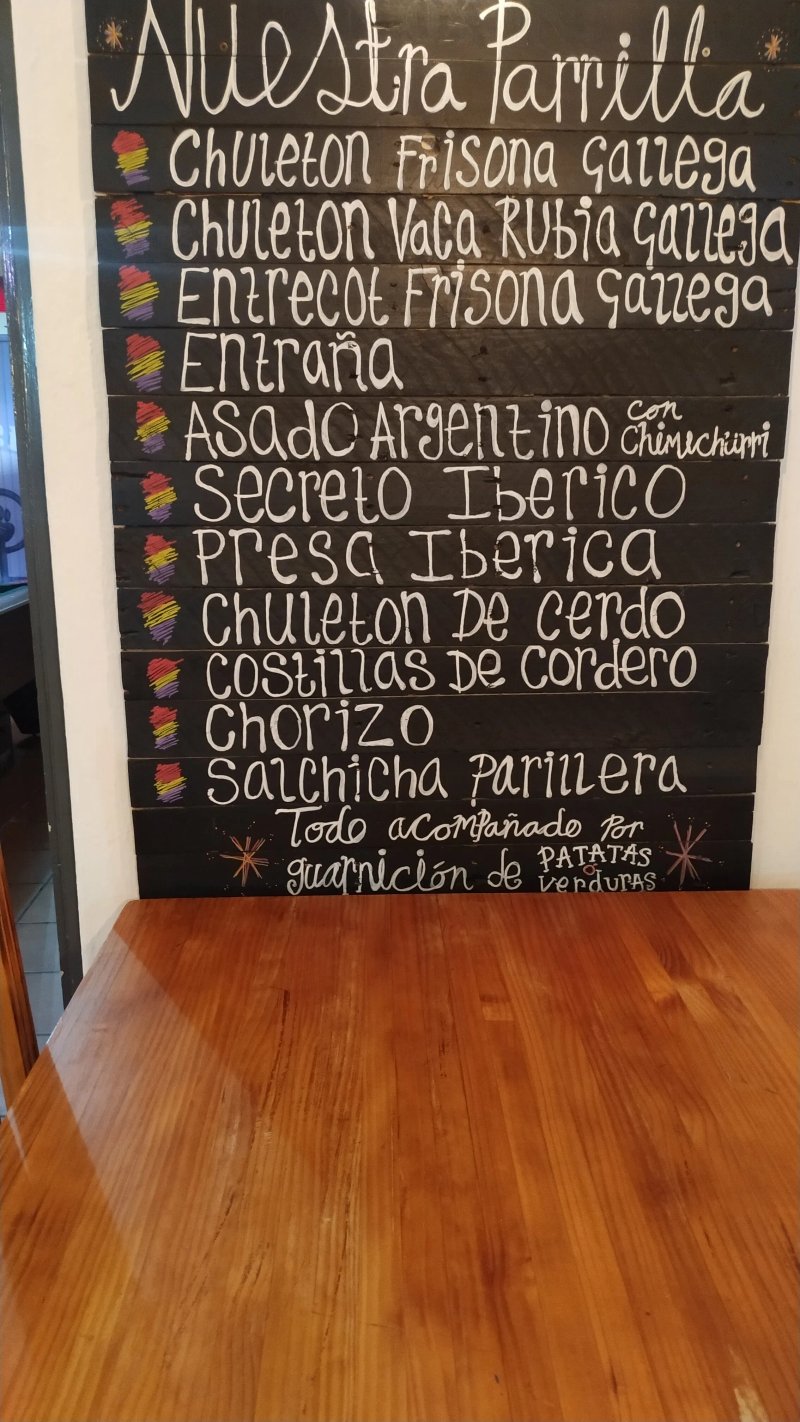 Nuestra Parrilla
Chuleton Frisona Gallega
Chuleton Vaca Rubia Gallega
Entrecot Frisona Gallega
Entraña
Asado Argentino con Chimichurri
Secreto Iberico
Presa Iberica
Chuleton De Cerdo
Costillas De Cordero
Chorizo
Salchicha Parillera
Todo acompañado por
guarnición de PATATAS o verduras